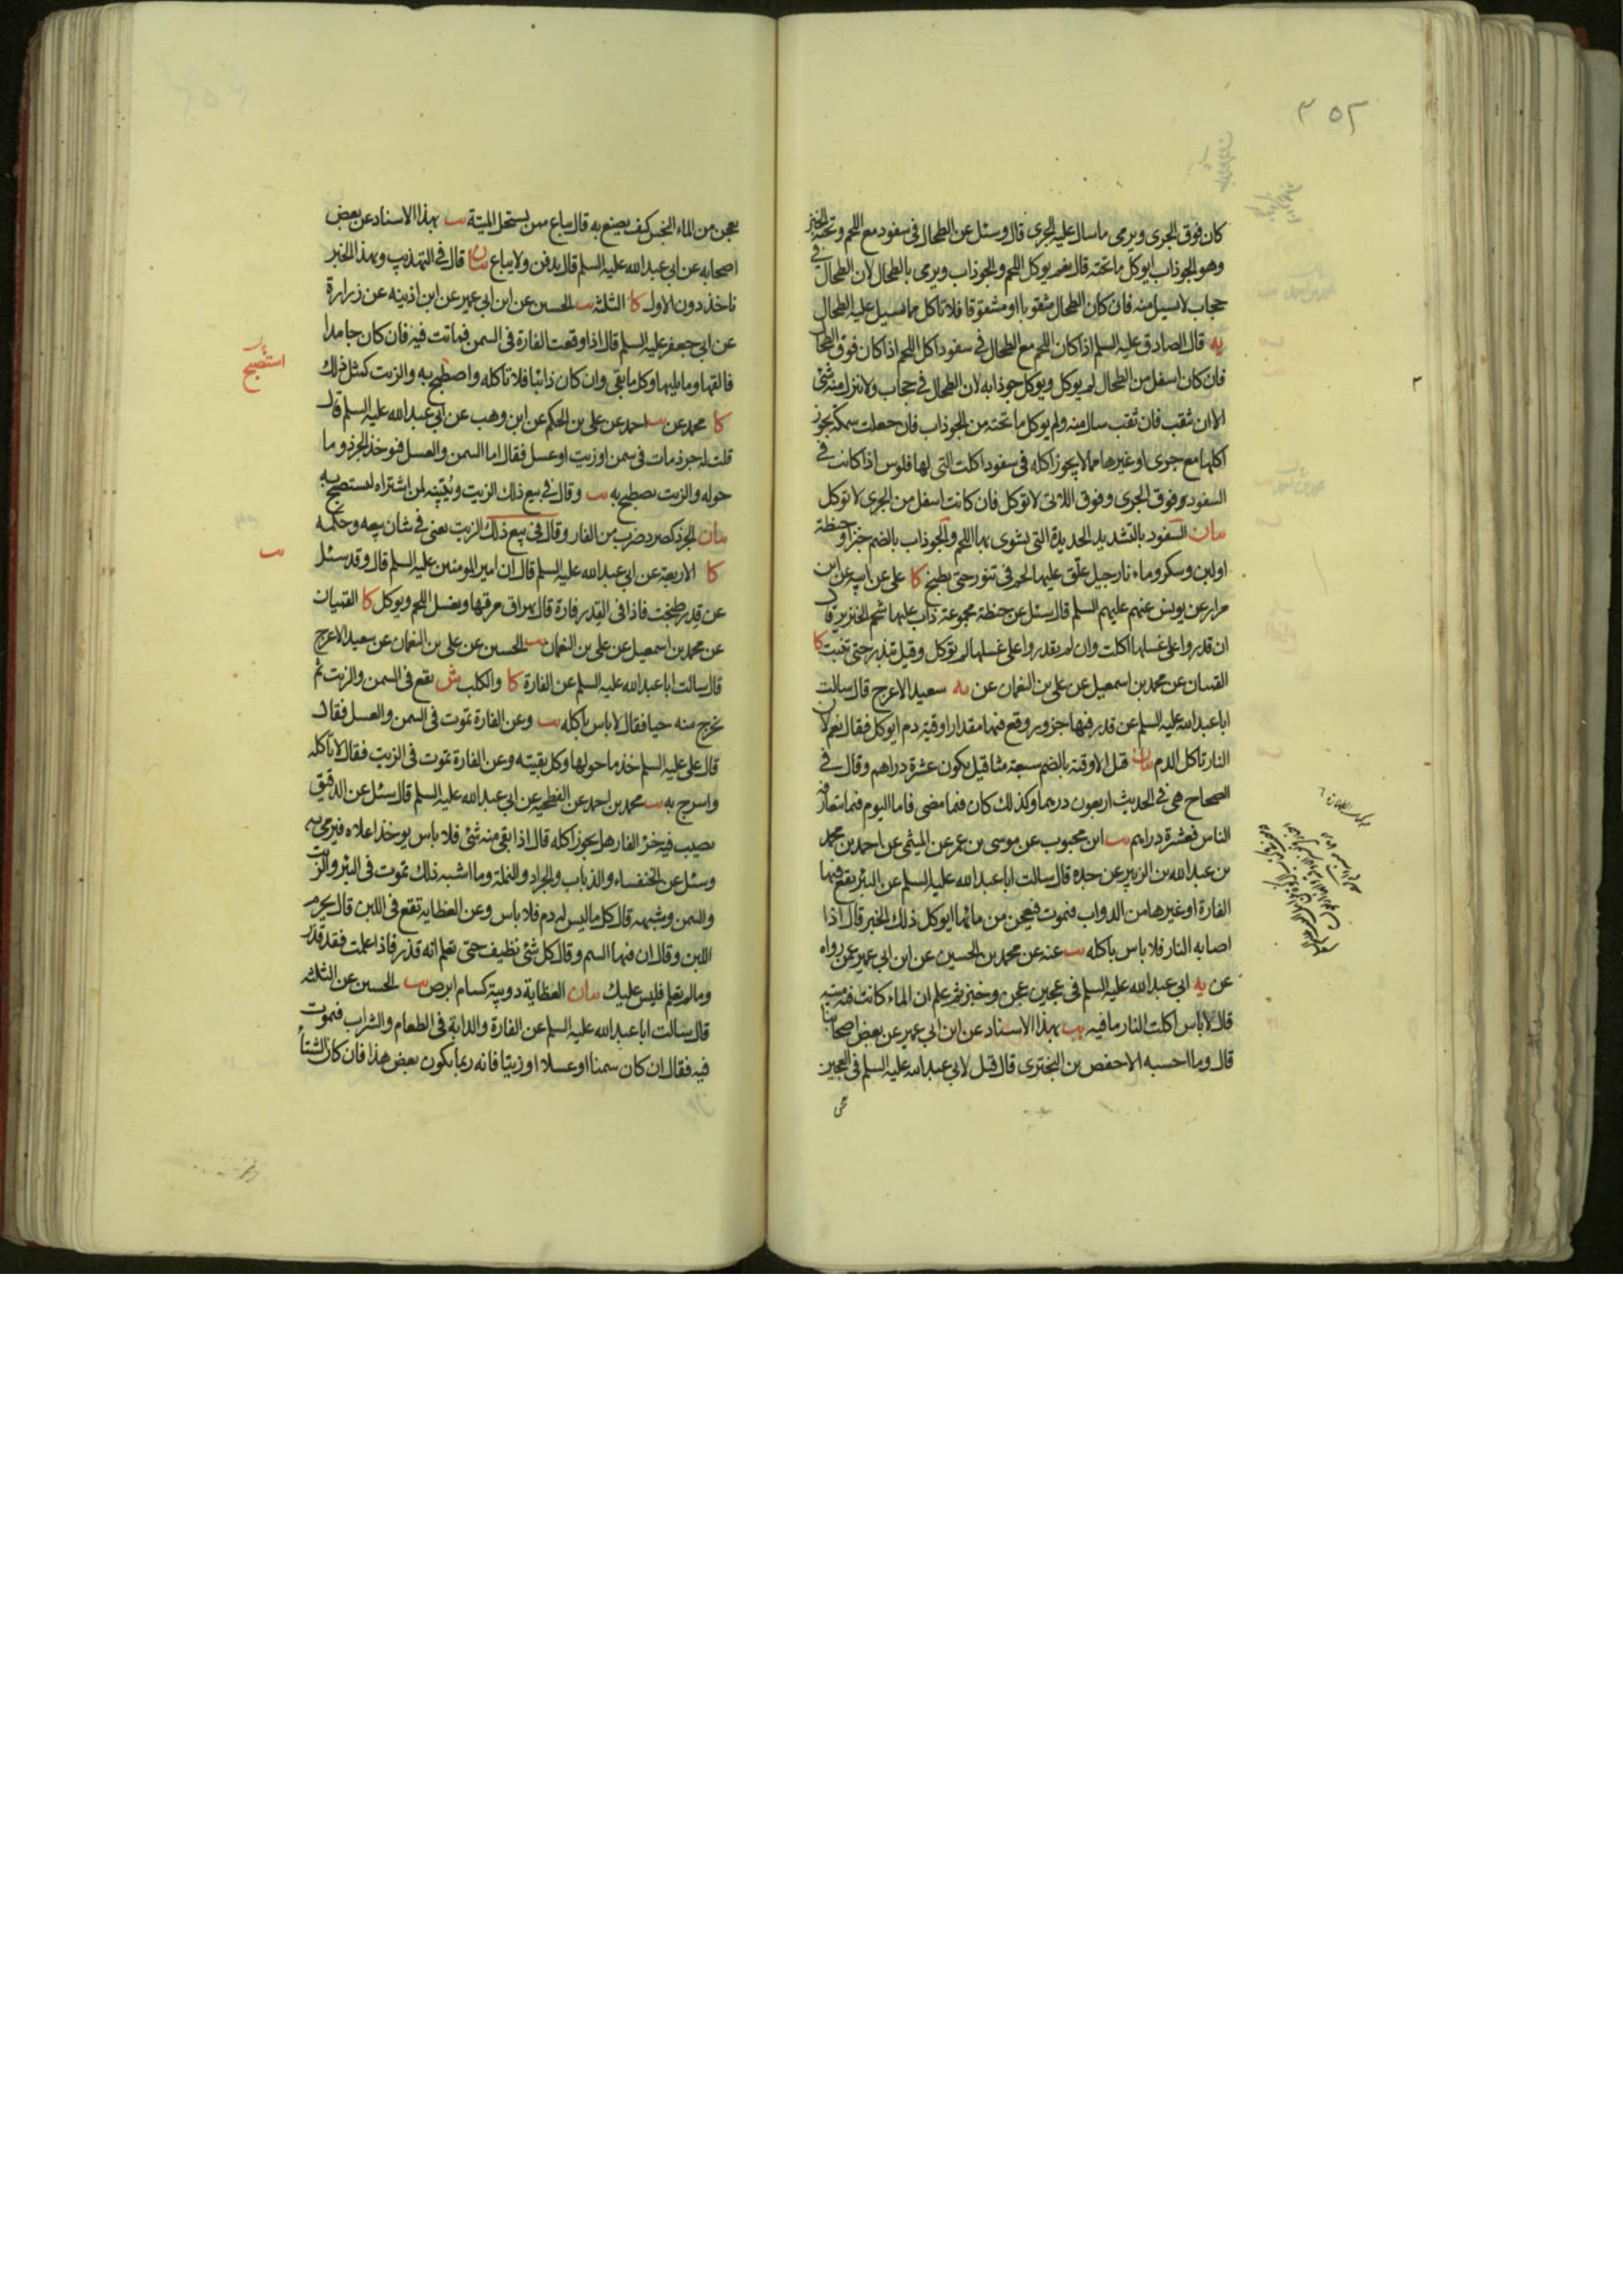 ٣٥٢
كان فوق الجرى ويرمى ماسال عليه الجرى قال وسئل عن الطحال فى سفود مع اللحم وتحته الخبز
وهو الجوذاب ايوكل ماتحته قال نعم يوكل اللحم والجوذاب ويرمى بالطحال لان الطحال فى
حجاب لايسيل منه فان كان الطحال مثقوبا او مشقوقا فلا تاكل مما يسيل عليه الطحال
يه قال الصادق عليه السلم اذا كان اللحم مع الطحال فى سفود اكل اللحم اذا كان فوق الطحال
فان كان اسفل من الطحال لم يوكل ويوكل جوذابه لان الطحال فى حجاب ولا ينزل منه شئ
الا ان يثقب فان ثقب سال منه ولم يوكل ماتحته من الجوذاب فان جعلت سمكة يجوز
اكلها مع جرى او غيرها مما لا يجوز اكله فى سفود اكلت التى لها فلوس اذا كانت فى
السفود فوق الجرى وفوق اللاتى لا توكل فان كانت اسفل من الجرى لا توكل
بيان السفود بالتشديد الحديدة التى يشوى بها اللحم والجوذاب بالضم خبز او حنطة
او لبن وسكر وماء نارجيل علق عليها لحم فى تنور حتى يطبخ كا على عن ابيه عن ابن
مرار عن يونس عنهم عليهم السلم قال سئل عن حنطة مجموعة ذاب عليها شحم الخنزير قال
ان قدروا على غسلها اكلت وان لم يقدروا على غسلها لم توكل وقيل تبذر حتى تنبت كا
القميان عن محمد بن اسمعيل عن على بن النعمان عن يه سعيد الاعرج قال سالت
ابا عبد الله عليه السلم عن قدر فيها جزور وقع فيها مقدار اوقية دم ايوكل فقال نعم لان
النار تاكل الدم بيان قيل الاوقية بالضم سبعة مثاقيل يكون عشرة دراهم وقال فى
الصحاح هى فى الحديث اربعون درهما وكذلك كان فيما مضى فاما اليوم فيما يتعارفه
الناس فعشرة دراهم يب ابن محبوب عن موسى بن عمر عن الميثمى عن احمد بن محمد
بن عبد الله بن الزبير عن جده قال سالت ابا عبد الله عليه السلم عن البئر يقع فيها
الفارة او غيرها من الدواب فتموت فيعجن من مائها ايوكل ذلك الخبز قال اذا
اصابه النار فلا باس باكله يب عنه عن محمد بن الحسين عن ابن ابى عمير عمن رواه
عن يه ابى عبد الله عليه السلم فى عجين عجن وخبز ثم علم ان الماء كانت فيه ميتة
قال لا باس اكلت النار مافيه يب بهذا الاسناد عن ابن ابى عمير عن بعض اصحابنا
قال وما احسبه الا حفص بن البخترى قال قيل لابى عبد الله عليه السلم فى العجين
يعجن من الماء النجس كيف يصنع به قال يباع ممن يستحل الميتة يب بهذا الاسناد عن بعض
اصحابه عن ابى عبد الله عليه السلم قال يدفن ولا يباع بيان قال فى التهذيب وبهذا الخبر
ناخذ دون الاول كا الثلثة يب الحسين عن ابن ابى عمير عن ابن اذينه عن زرارة
عن ابى جعفر عليه السلم قال اذا وقعت الفارة فى السمن فماتت فيه فان كان جامدا
فالقها وما يليها وكل ما بقى وان كان ذائبا فلا تاكله واصطبح به والزيت كمثل ذلك
استصبح
كا محمد عن يب احمد عن على بن الحكم عن ابن وهب عن ابى عبد الله عليه السلم قال
قلت له جرذ مات فى سمن او زيت او عسل فقال اما السمن والعسل فيوخذ الجرذ وما
حوله والزيت يصطبح به يب وقال فى بيع ذلك الزيت ويبينه لمن اشتراه ليستصبح به
بيان الجرذ كصرد ضرب من الفار وقال فى بيع ذلك الزيت يعنى فى شان بيعه وحكمه
كا الاربعة عن ابى عبد الله عليه السلم قال ان امير المومنين عليه السلم قال وقد سئل
يب
عن قدر طبخت فاذا فى القدر فارة قال يهراق مرقها ويغسل اللحم ويوكل كا القميان
عن محمد بن اسمعيل عن على بن النعمان يب الحسين عن على بن النعمان عن سعيد الاعرج
قال سالت ابا عبد الله عليه السلم عن الفارة كا والكلب ش تقع فى السمن والزيت ثم
يخرج منه حيا فقال لا باس باكله يب وعن الفارة تموت فى السمن والعسل فقال
قال على عليه السلم خذ ما حولها وكل بقيته وعن الفارة تموت فى الزيت فقال لا تاكله
واسرج به يب محمد بن احمد عن الفطحية عن ابى عبد الله عليه السلم قال سئل عن الدقيق
يصيب فيه خرء الفار هل يجوز اكله قال اذا بقى منه شئ فلا باس يوخذ اعلاه فيرمى به
وسئل عن الخنفساء والذباب والجراد والنملة وما اشبه ذلك تموت فى البئر والزيت
والسمن وشبهه قال كل ما ليس له دم فلا باس وعن العظاية تقع فى اللبن قال يحرم
اللبن وقال ان فيها السم وقال كل شئ نظيف حتى تعلم انه قذر فاذا علمت فقد قذر
وما لم تعلم فليس عليك بيان العظاية دويبة كسام ابرص يب الحسين عن الثلثة
قال سالت ابا عبد الله عليه السلم عن الفارة والدابة فى الطعام والشراب فتموت
فيه فقال ان كان سمنا او عسلا او زيتا فانه ربما يكون بعض هذا فان كان الشتاء